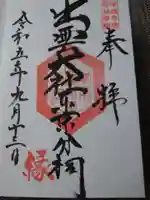 奉拝
出雲大社東京分祠
令和五年九月十三日
縁